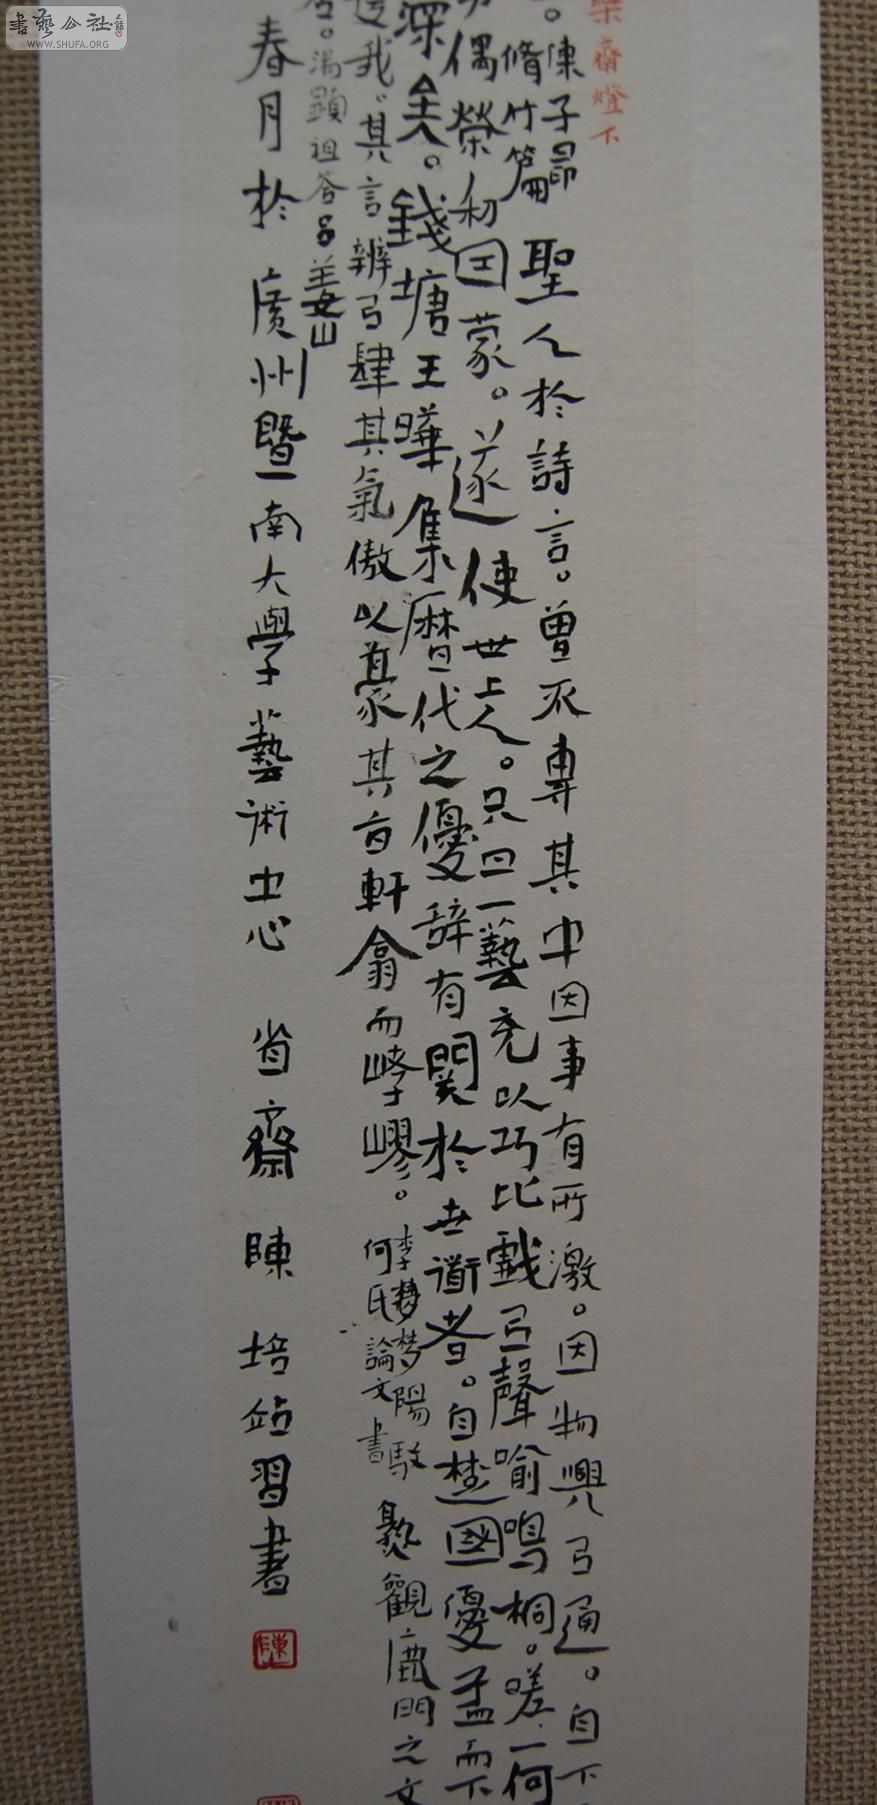 樂齋燈下
。陳子昂
脩竹篇
聖人於詩言。曾不專其中因事有所激。因物興以通。自下
偶榮利回蒙。遂使世上人。只曰一藝充以巧比戲以聲喻鳴桐。嗟一何
深矣。錢塘王曄集曆代之優辞有関於世道者。自楚國優孟而下
我。其言辨以肆其氣傲以豪其旨軒翕而㟧嵺。李夢陽駁
何氏論文書
聚觀鹿門之文
湯顯祖答呂姜山
春月於廣州暨南大學藝術中心 省齋 陳培站習書
陳
書藝公社
WWW.SHUFA.ORG